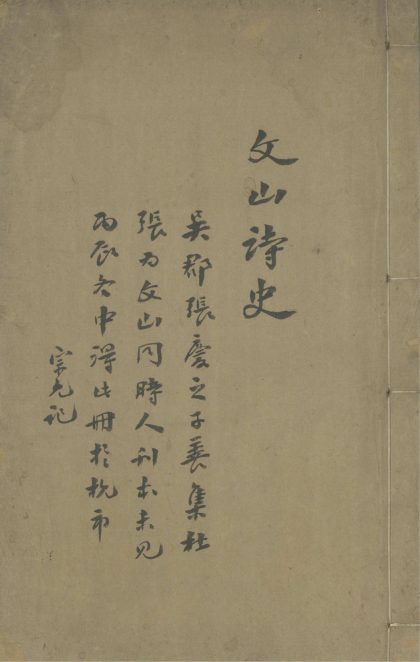 文山诗史
吴郡張慶之子善集杜
張为文山同時人刊本未見
丙辰冬中得此冊於杭市
宗九记